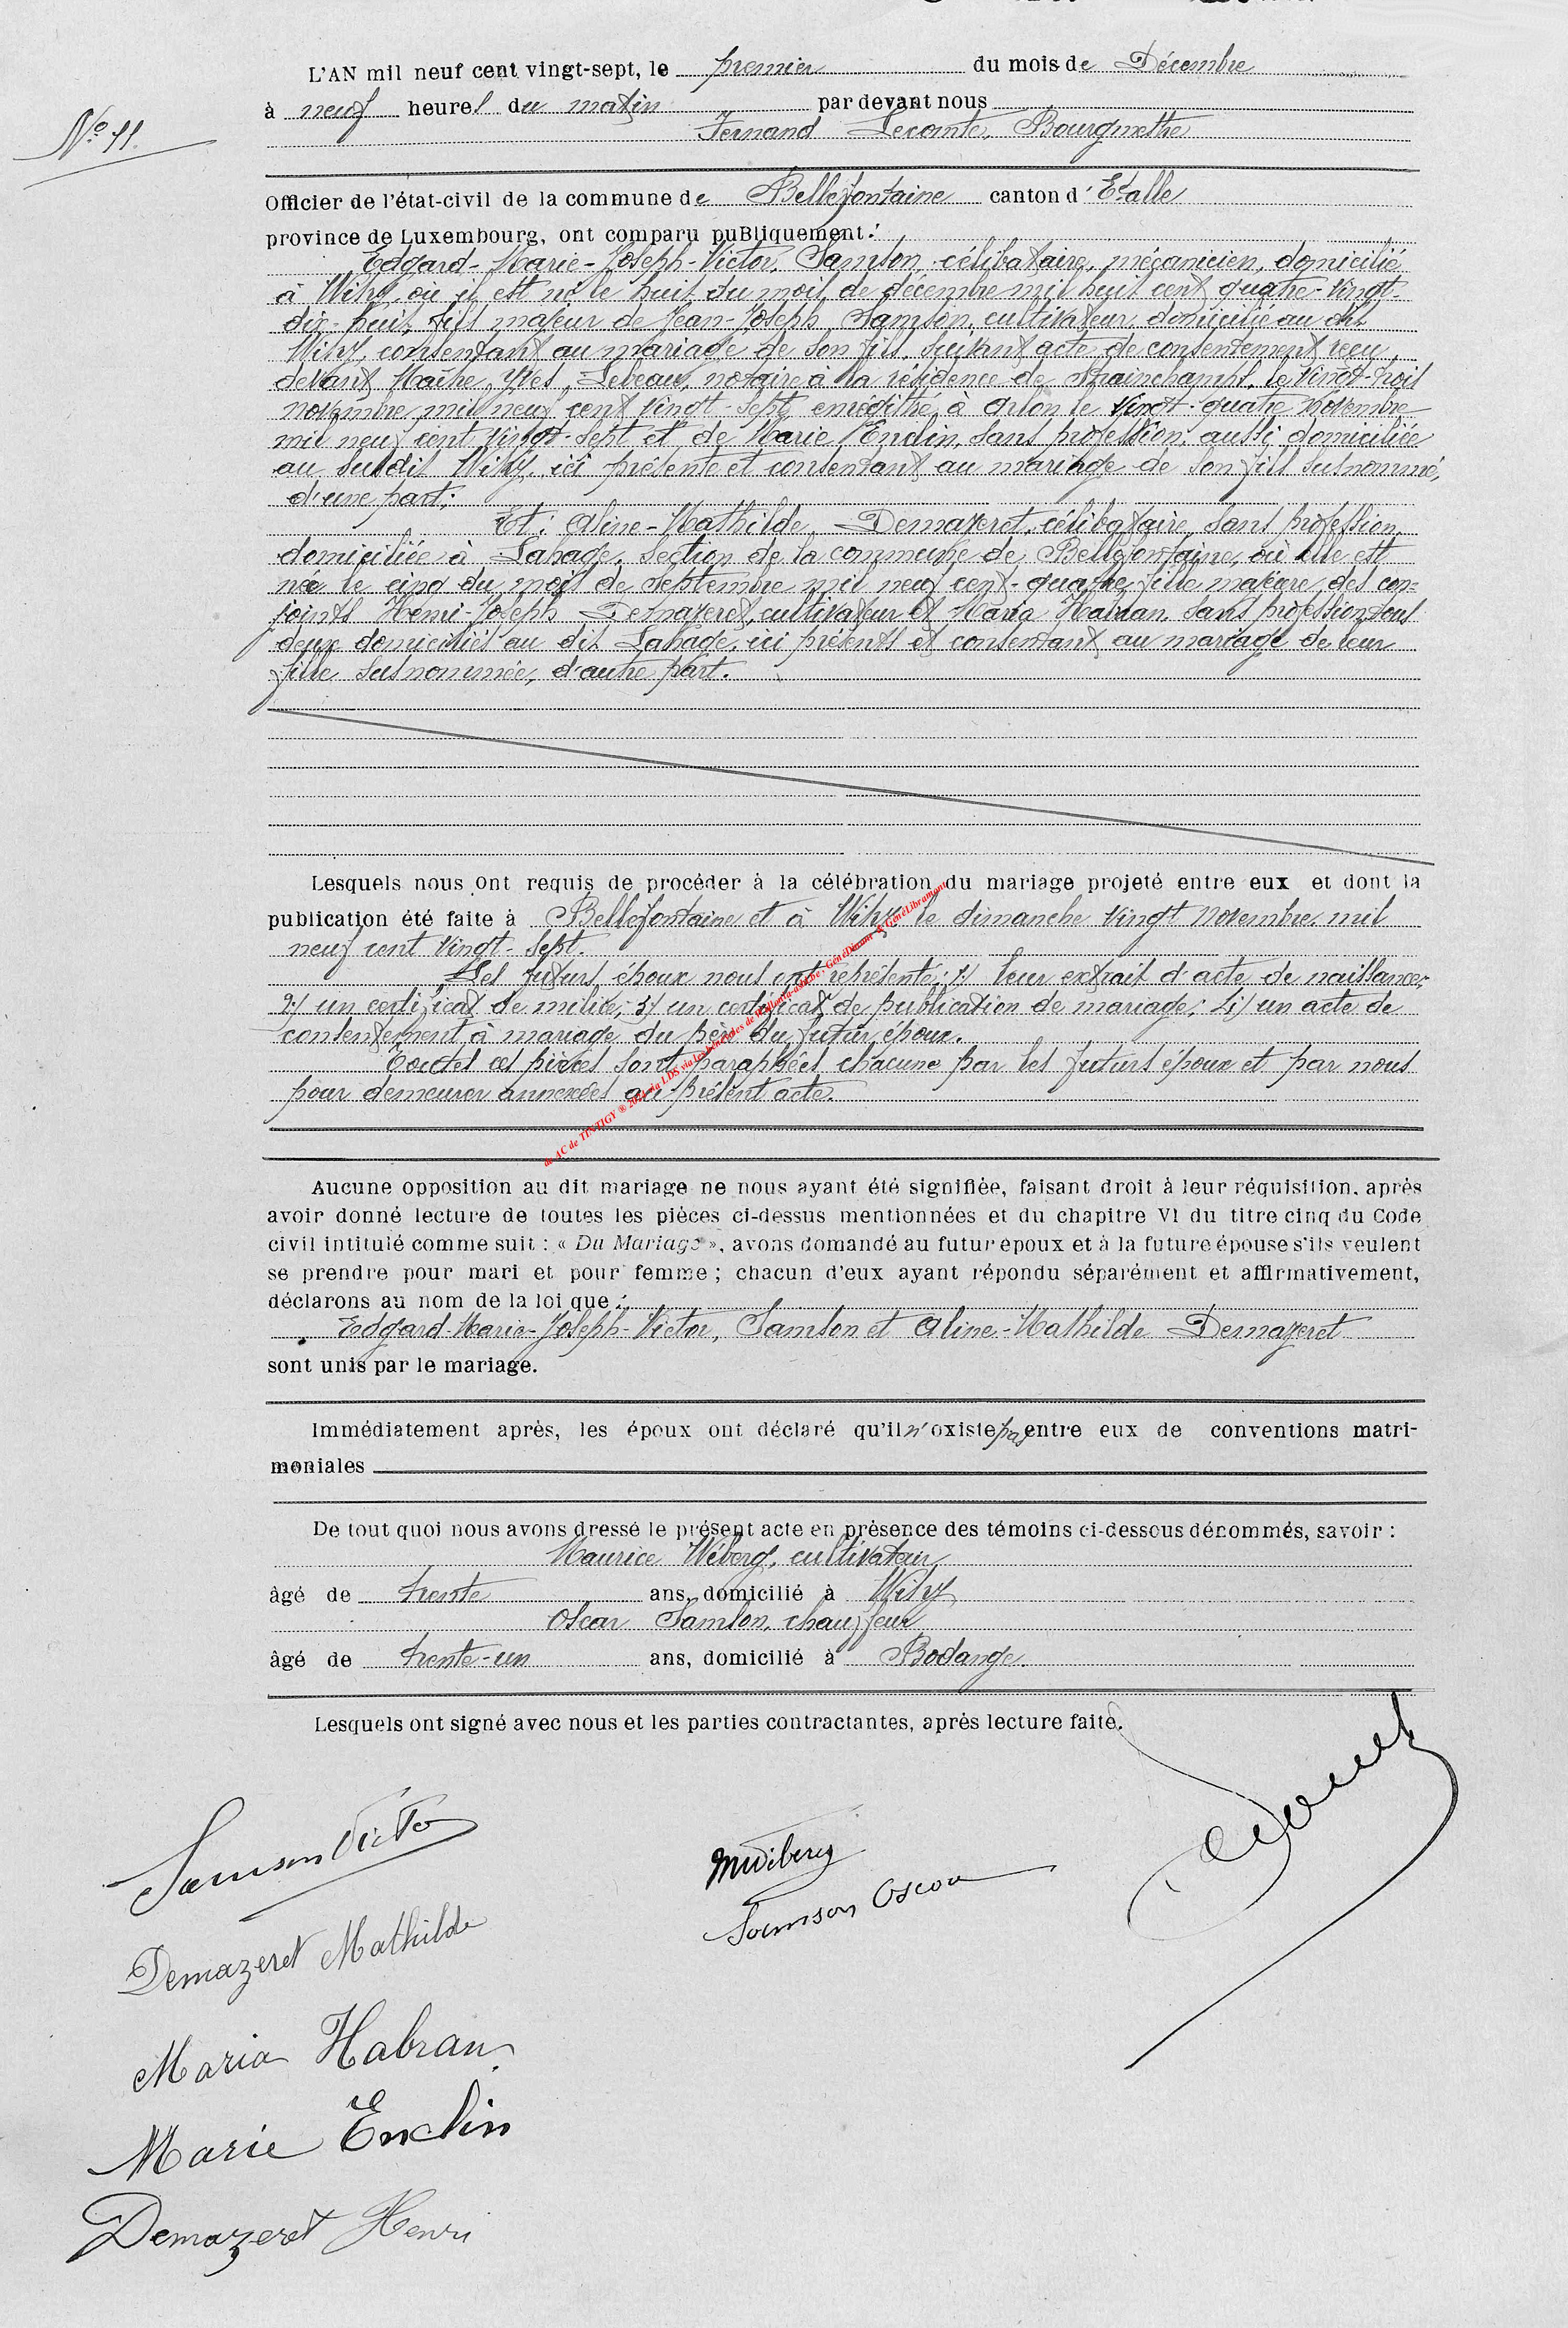 L'AN mil neuf cent vingt-sept, le premier du mois de Décembre
à neuf heures du matin par devant nous
Fernand Lecomte, Bourgmestre
N° 11.
Officier de l'état-civil de la commune de Bellefontaine canton d'Etalle
province de Luxembourg, ont comparu publiquement :
Edgard-Marie-Joseph-Victor, Samson, célibataire, mécanicien, domicilié
à Witry, où il est né le huit du mois de décembre mil huit cent quatre-vingt-
dix-huit, fils majeur de Jean-Joseph Samson, cultivateur, domicilié au dit
Witry, consentant au mariage de son fils, suivant acte de consentement reçu
devant Maître Yves Lebeau, notaire à la résidence de Strainchamps, le vingt-trois
novembre mil neuf cent vingt-sept, enrégistré à Arlon le vingt-quatre novembre
mil neuf cent vingt-sept et de Marie Enclin, sans profession, aussi domiciliée
au susdit Witry, ici présente et consentant au mariage de son fils susnommé,
d'une part ;
Et : Aline-Mathilde, Demazeret, célibataire, sans profession,
domiciliée à Lahage, section de la commune de Bellefontaine, où elle est
née le cinq du mois de septembre mil neuf cent-quatre, fille majeure des con-
joints Henri-Joseph Demazeret, cultivateur et Maria Habran, sans profession, tous
deux domiciliés au dit Lahage, ici présents et consentant au mariage de leur
fille susnommée, d'autre part.
Lesquels nous ont requis de procéder à la célébration du mariage projeté entre eux et dont la
publication été faite à Bellefontaine et à Witry le dimanche vingt novembre mil
neuf cent vingt-sept.
Les futurs époux nous ont représenté : 1) leur extrait d'acte de naissance;
2) un certificat de milice; 3) un certificat de publication de mariage; 4) un acte de
consentement à mariage du père du futur époux.
Toutes ces pièces sont paraphées chacune par les futurs époux et par nous
pour demeurer annexées au présent acte.
de AC de TINTIGY ® 2024 via LDS via les bénévoles de
Aucune opposition au dit mariage ne nous ayant été signifiée, faisant droit à leur réquisition, après
avoir donné lecture de toutes les pièces ci-dessus mentionnées et du chapitre VI du titre cinq du Code
civil intitulé comme suit : « Du Mariage », avons domandé au futur époux et à la future épouse s'ils veulent
se prendre pour mari et pour femme ; chacun d'eux ayant répondu séparément et affirmativement,
déclarons au nom de la loi que :
Edgard-Marie-Joseph-Victor, Samson et Aline-Mathilde Demazeret
sont unis par le mariage.
Immédiatement après, les époux ont déclaré qu'il n'existe pas entre eux de conventions matri-
moniales
De tout quoi nous avons dressé le présent acte en présence des témoins ci-dessous dénommés, savoir :
Maurice Wiberg, cultivateur
âgé de trente ans, domicilié à Witry
Oscar Samson, chauffeur
âgé de trente-un ans, domicilié à Bodange.
Lesquels ont signé avec nous et les parties contractantes, après lecture faite.
Samson Victo
MWiberg
Samson Oscar
Demazeret Mathilde
Maria Habran
Marie Enclin
Demazeret Henri